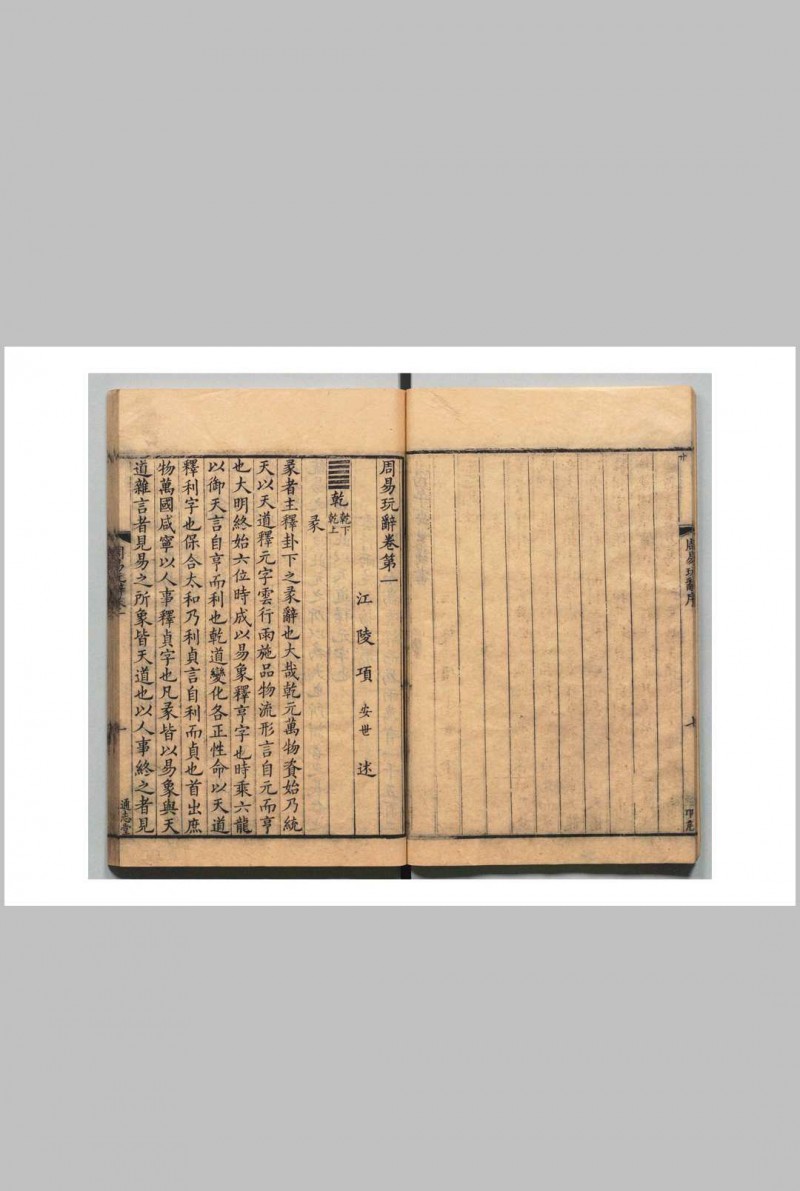 周易玩辭卷第一
江陵項安世述
乾 乾下乾上
彖
彖者主釋卦下之彖辭也大哉乾元萬物資始乃統
天以天道釋元字雲行雨施品物流形言自元而亨
也大明終始六位時成以易象釋亨字也時乘六龍
以御天言自亨而利也乾道變化各正性命以天道
釋利字也保合太和乃利貞言自利而貞也首出庶
物萬國咸寧以人事釋貞字也凡彖皆以易象與天
道雜言者見易之所象皆天道也以人事終之者見
周易玩辭卷一
一
通志堂
周易玩辭序